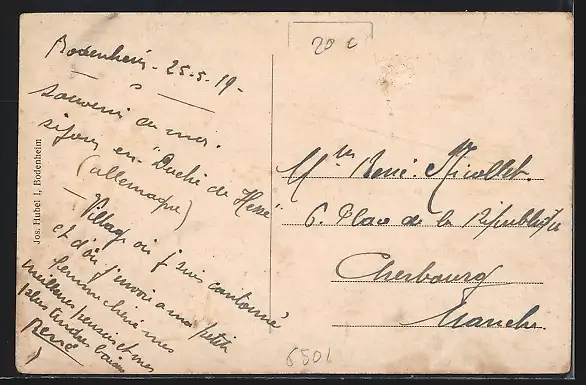 Bodenheim - 25-5-19-
Souvenir de mon
séjour en "Duché de Hesse"
(allemagne)
Village où je suis cantonné
et d'où j'envoie à ma petite
femme chérie mes
meilleures pensées et mes
plus tendres baisers
René
Jos. Hubel I, Bodenheim
20 c
René Nicollet.
6. Place de la République
Cherbourg
Manche.
6501